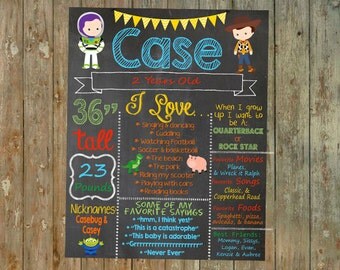 Case
2 Years Old
36"
tall
23
Pounds
Nicknames:
Casebug &
Casey
I Love...
Singing & dancing
Cuddling
Watching Football
Soccer & basketball
The beach
The park
Riding my scooter
Playing with cars
Reading books
SOME OF MY
FAVORITE SAYINGS
"Hmm, I think yes!"
"This is a catastrophe"
"This baby is adorable"
"Never Ever"
When I grow
up I want to
be A:
QUARTERBACK
or
ROCK STAR
Favorite Movies
Planes,
& Wreck it Ralph
Favorite Songs
Classic, &
Copperhead Road
Favorite Foods
Spaghetti, pizza,
Best Friends:
Mommy,
Logan, Evan,